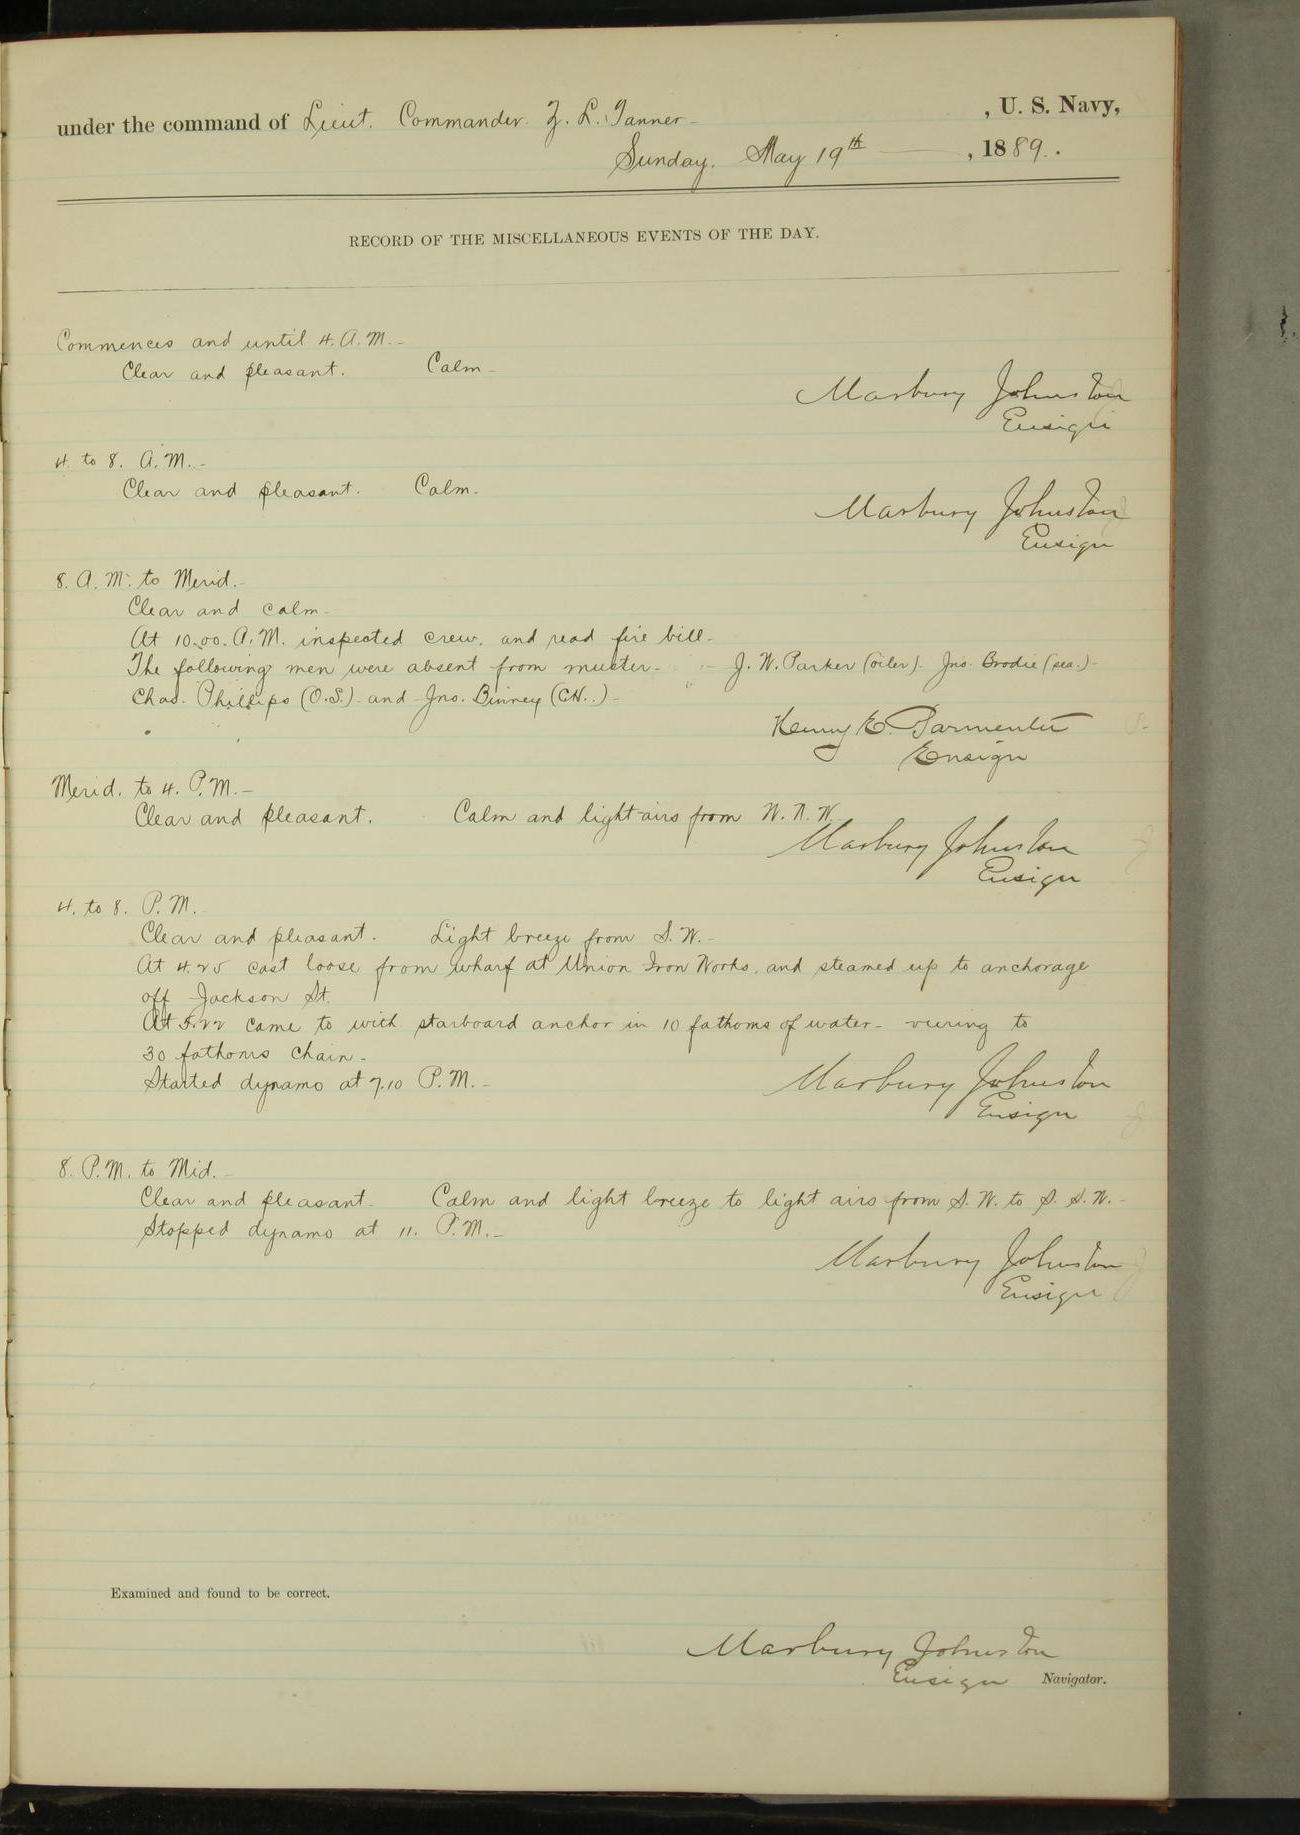 under the command of Lieut. Commander. Z. L. Tanner - , U. S. Navy,
Sunday. May 19th , 1889. .
RECORD OF THE MISCELLANEOUS EVENTS OF THE DAY.
Commences and until 4. A. M. -
Clear and pleasant. Calm -
Marbury Johnston
Ensign
4. to 8. A. M. -
Clear and pleasant. Calm.
Marbury Johnston
Ensign
8. A. M. to Merid. -
Clear and calm -
At 10.00. A. M. inspected crew, and read fire bill -
The following men were absent from muster - J. W. Parker (oiler). Jno. Brodie (sea.) -
Chas. Phillips (O.S.) and Jno. Binney (CH..) -
Henry E. Parmenter
Ensign
Merid. to 4. P. M. -
Clear and pleasant. Calm and light airs from W. N. W.
Marbury Johnston
Ensign
4. to 8. P. M.
Clear and pleasant. Light breeze from S. W. -
At 4.25 cast loose from wharf at Union Iron Works, and steamed up to anchorage
off Jackson St.
At 5.22 came to with starboard anchor in 10 fathoms of water - veering to
30 fathoms chain -
Started dynamo at 7.10 P. M. -
Marbury Johnston
Ensign
8. P. M. to Mid. -
Clear and pleasant - Calm and light breeze to light airs from S. W. to S. S. W. -
Stopped dynamo at 11. P. M. -
Marbury Johnston
Ensign
Examined and found to be correct.
Marbury Johnston
Ensign Navigator.